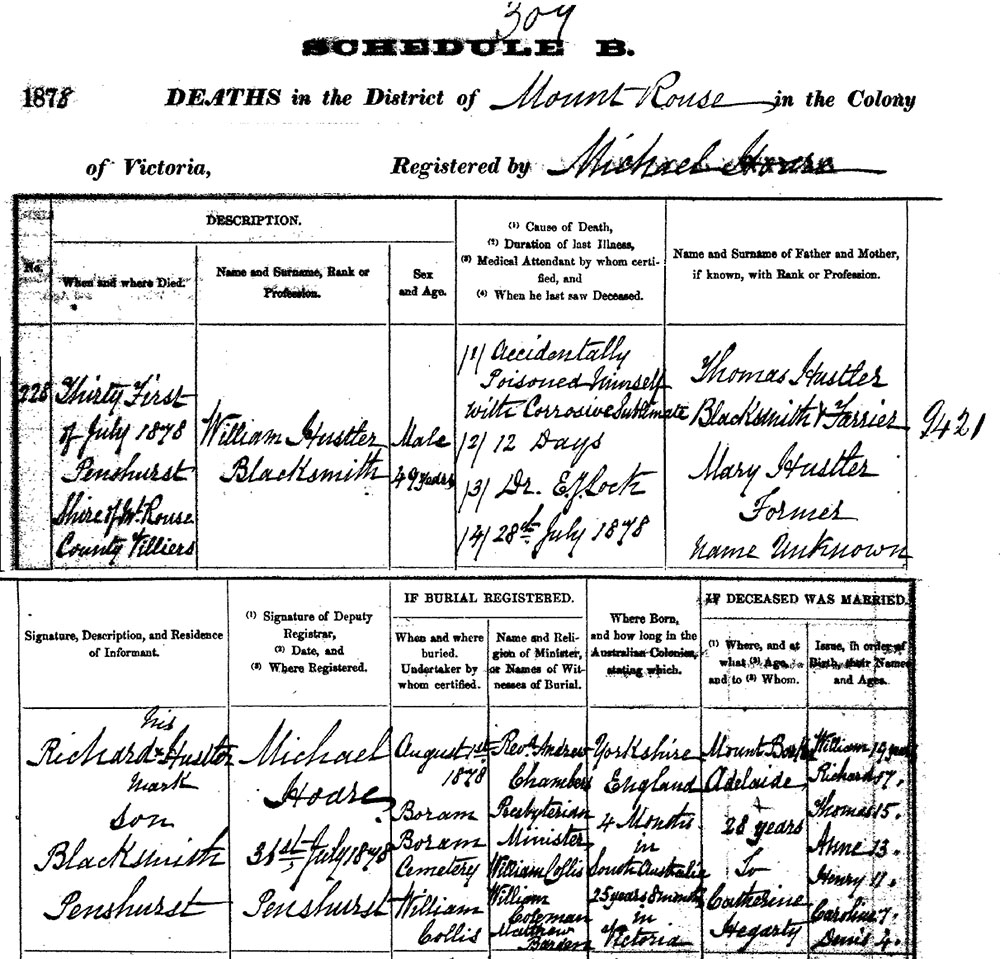 309
SCHEDULE B.
1878 DEATHS in the District of Mount Rouse in the Colony
of Victoria, Registered by Michael Hoare
DESCRIPTION.
No.
When and where Died.
Name and Surname, Rank or
Profession.
Sex
and Age.
(1) Cause of Death,
(2) Duration of last Illness,
(3) Medical Attendant by whom certi-
fied, and
(4) When he last saw Deceased.
Name and Surname of Father and Mother,
if known, with Rank or Profession.
228
Thirty First
of July 1878
Penshurst
Shire of Mt. Rouse
County Villiers
William Hustler
Blacksmith
Male
49 years
(1) Accidentally
Poisoned himself
with Corrosive Sublimate
(2) 12 Days
(3) Dr. E J Lock
(4) 28th July 1878
Thomas Hustler
Blacksmith & Farrier
Mary Hustler
Former
name Unknown
9421
Signature, Description, and Residence
of Informant.
(1) Signature of Deputy
Registrar,
(2) Date, and
(3) Where Registered.
IF BURIAL REGISTERED.
When and where
buried.
Undertaker by
whom certified.
Name and Reli-
gion of Minister,
or Names of Wit-
nesses of Burial.
Where Born,
and how long in the
Australian Colonies,
stating which.
IF DECEASED WAS MARRIED.
(1) Where, and at
what (2) Age,
and to (3) Whom.
Issue, in order of
Birth, their Names
and Ages.
his
Richard x Hustler
mark
Son
Blacksmith
Penshurst
Michael
Hoare
31st July 1878
Penshurst
August 1st
1878
Boram
Boram
Cemetery
William
Collis
Revd. Andrew
Chambers
Presbyterian
Minister
William Collis
William
Coleman
Matthew
Yorkshire
England
4 Months
in
South Australia
25 years 8 months
in
Victoria
Mount
Adelaide
28 years
To
Catherine
Hegarty
William 19 years
Richard 17.
Thomas 15.
Anne 13.
Henry 11.
Caroline 7.
Denis 4.